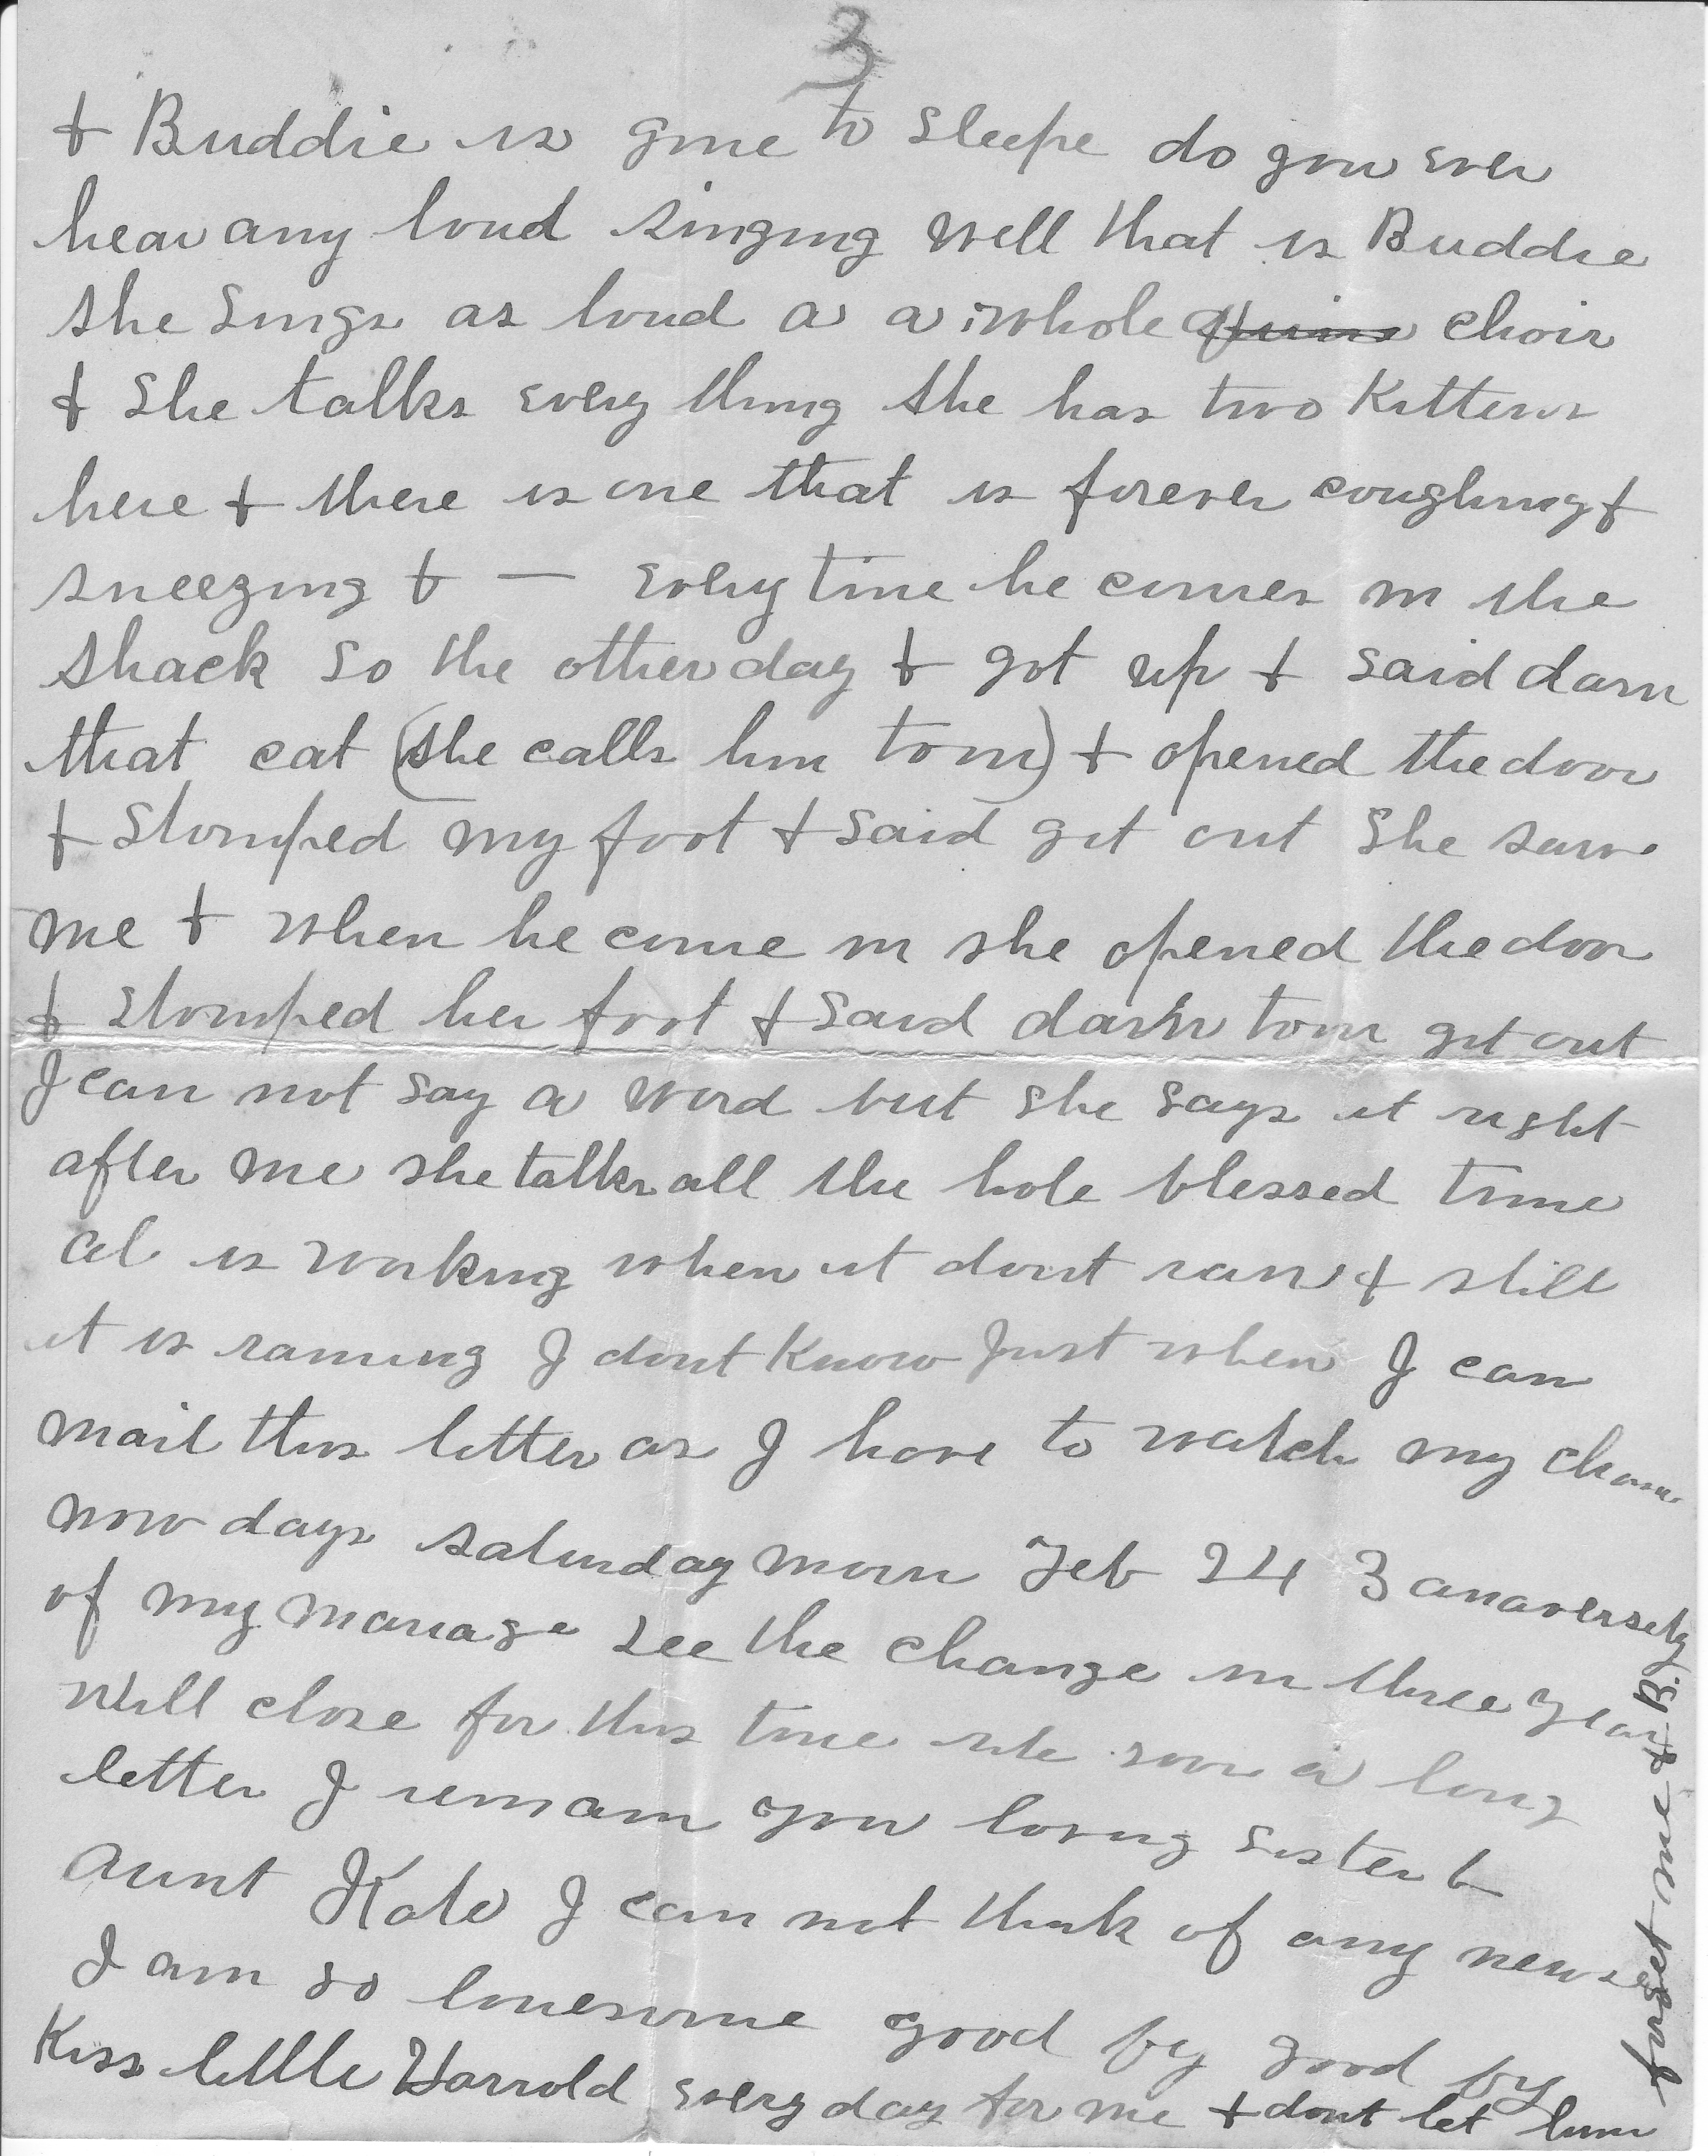 3
+ Buddie is gone to sleepe do you ever
hear any loud singing well that is Buddie
she sings as loud a a whole choir
+ she talks every thing she has two Kittens
here + there is one that is forever coughing +
sneezing + — every time he comes in the
shack so the other day I got up + said darn
that cat (she calls him tom) + opened the door
+ stomped my foot + said git out she saw
me + when he come in she opened the door
+ stomped her foot + said darn tom git out
I can not say a word but she says it right
after me she talks all the hole blessed time
al is working when it dont rain + still
it is raining I dont Know Just when I can
mail this letter as I have to watch my chance
now days saturday morn Feb 24 3 anaversity
of my mariage see the change in three year
will close for this time rite soon a long
letter I remain your loving sister &
aunt Kate I can not think of any news
I am so lonesome good by good by
Kiss little Harrold every day for me + dont let him
forget me & B.